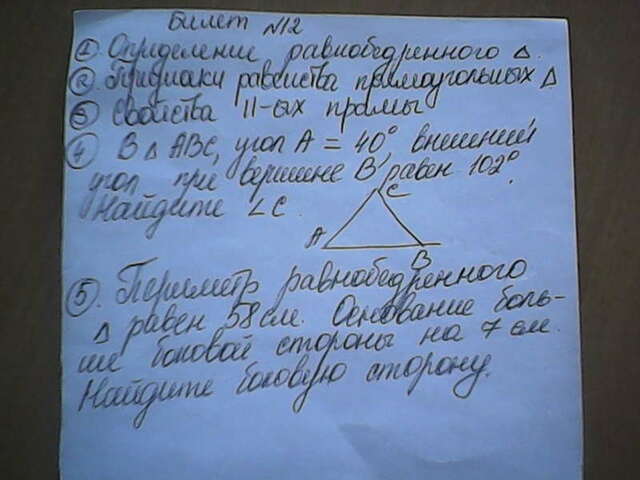 Билет №12
① Определение равнобедренного △.
② Признаки равенства прямоугольных △
③ Свойства II-ых прямых
④ В △ ABC, угол A = 40° внешний
угол при вершине B равен 102°.
Найдите ∠C.
C
A
B
⑤. Периметр равнобедренного
△ равен 58 см. Основание боль-
ше боковой стороны на 7 см.
Найдите боковую сторону.